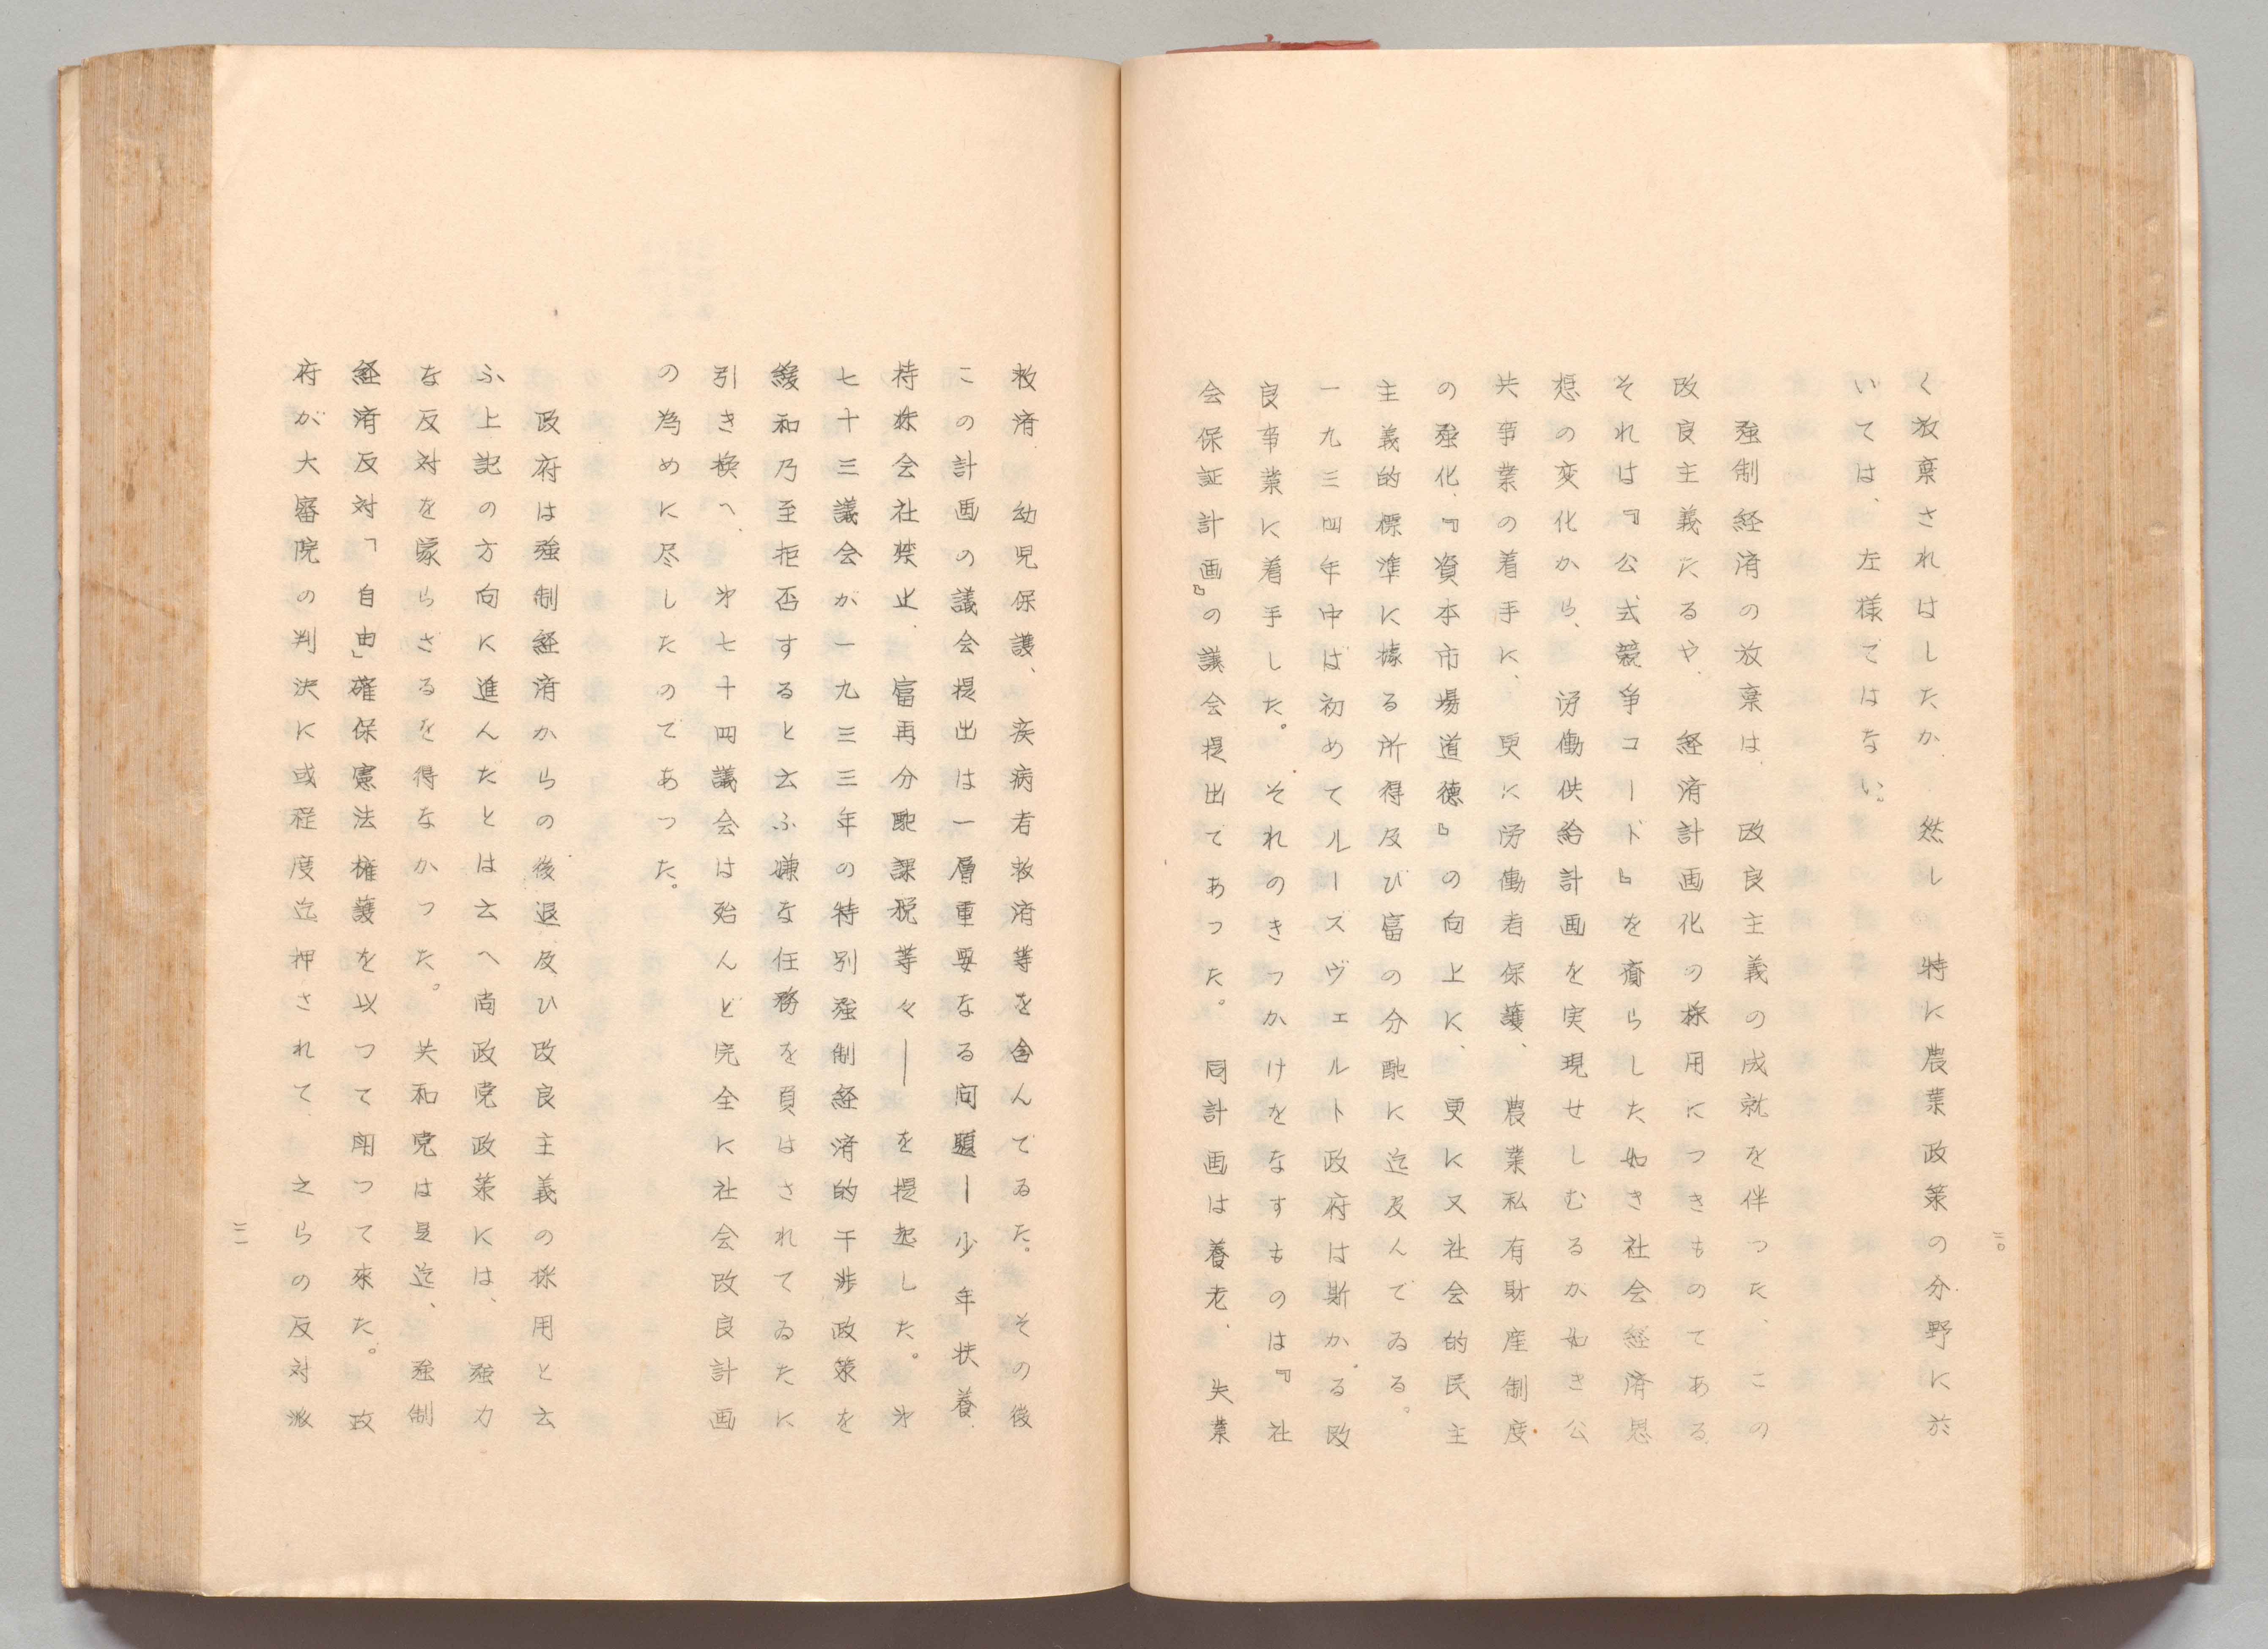 二〇
く放棄されはしたか、然し、特に農業政策の分野に於
いては、左様てはない。
強制経済の放棄は、改良主義の成就を伴った、この
改良主義たるや、経済計画化の採用につきものてある
それは『公式競争コード』を齎らした如き社会経済思
想の変化から、労働供給計画を実現せしむるか如き公
共事業の着手に、更に労働者保護、農業私有財産制度
の強化、『資本市場道徳』の向上に、更に又社会的民主
主義的標準に據る所得及び富の分配に迄及んでゐる。
一九三四年中ば初めてルーズヴェルト政府は斯かる改
良事業に着手した。それのきつかけをなすものは『社
会保証計画』の議会提出てあつた。同計画は養老、失業
救済、幼児保護、疾病者救済等を含んでゐた。その後
この計画の議会提出は一層重要なる問題ー少年扶養、
持株会社禁止、富再分配課税等々――を提起した。第
七十三議会が一九三三年の特別強制経済的干渉政策を
緩和乃至拒否すると云ふ嫌な任務を負はされてゐたに
引き換へ、第七十四議会は殆んど完全に社会改良計画
の為めに尽したのてあつた。
政府は強制経済からの後退及ひ改良主義の採用と云
ふ上記の方向に進んたとは云へ尚政党政策には、強力
な反対を蒙らさるを得なかつた。共和党は是迄、強制
経済反対「自由」確保憲法擁護を以つて用つて来た。政
府が大審院の判決に或程度迄押されて、之らの反対派
三一